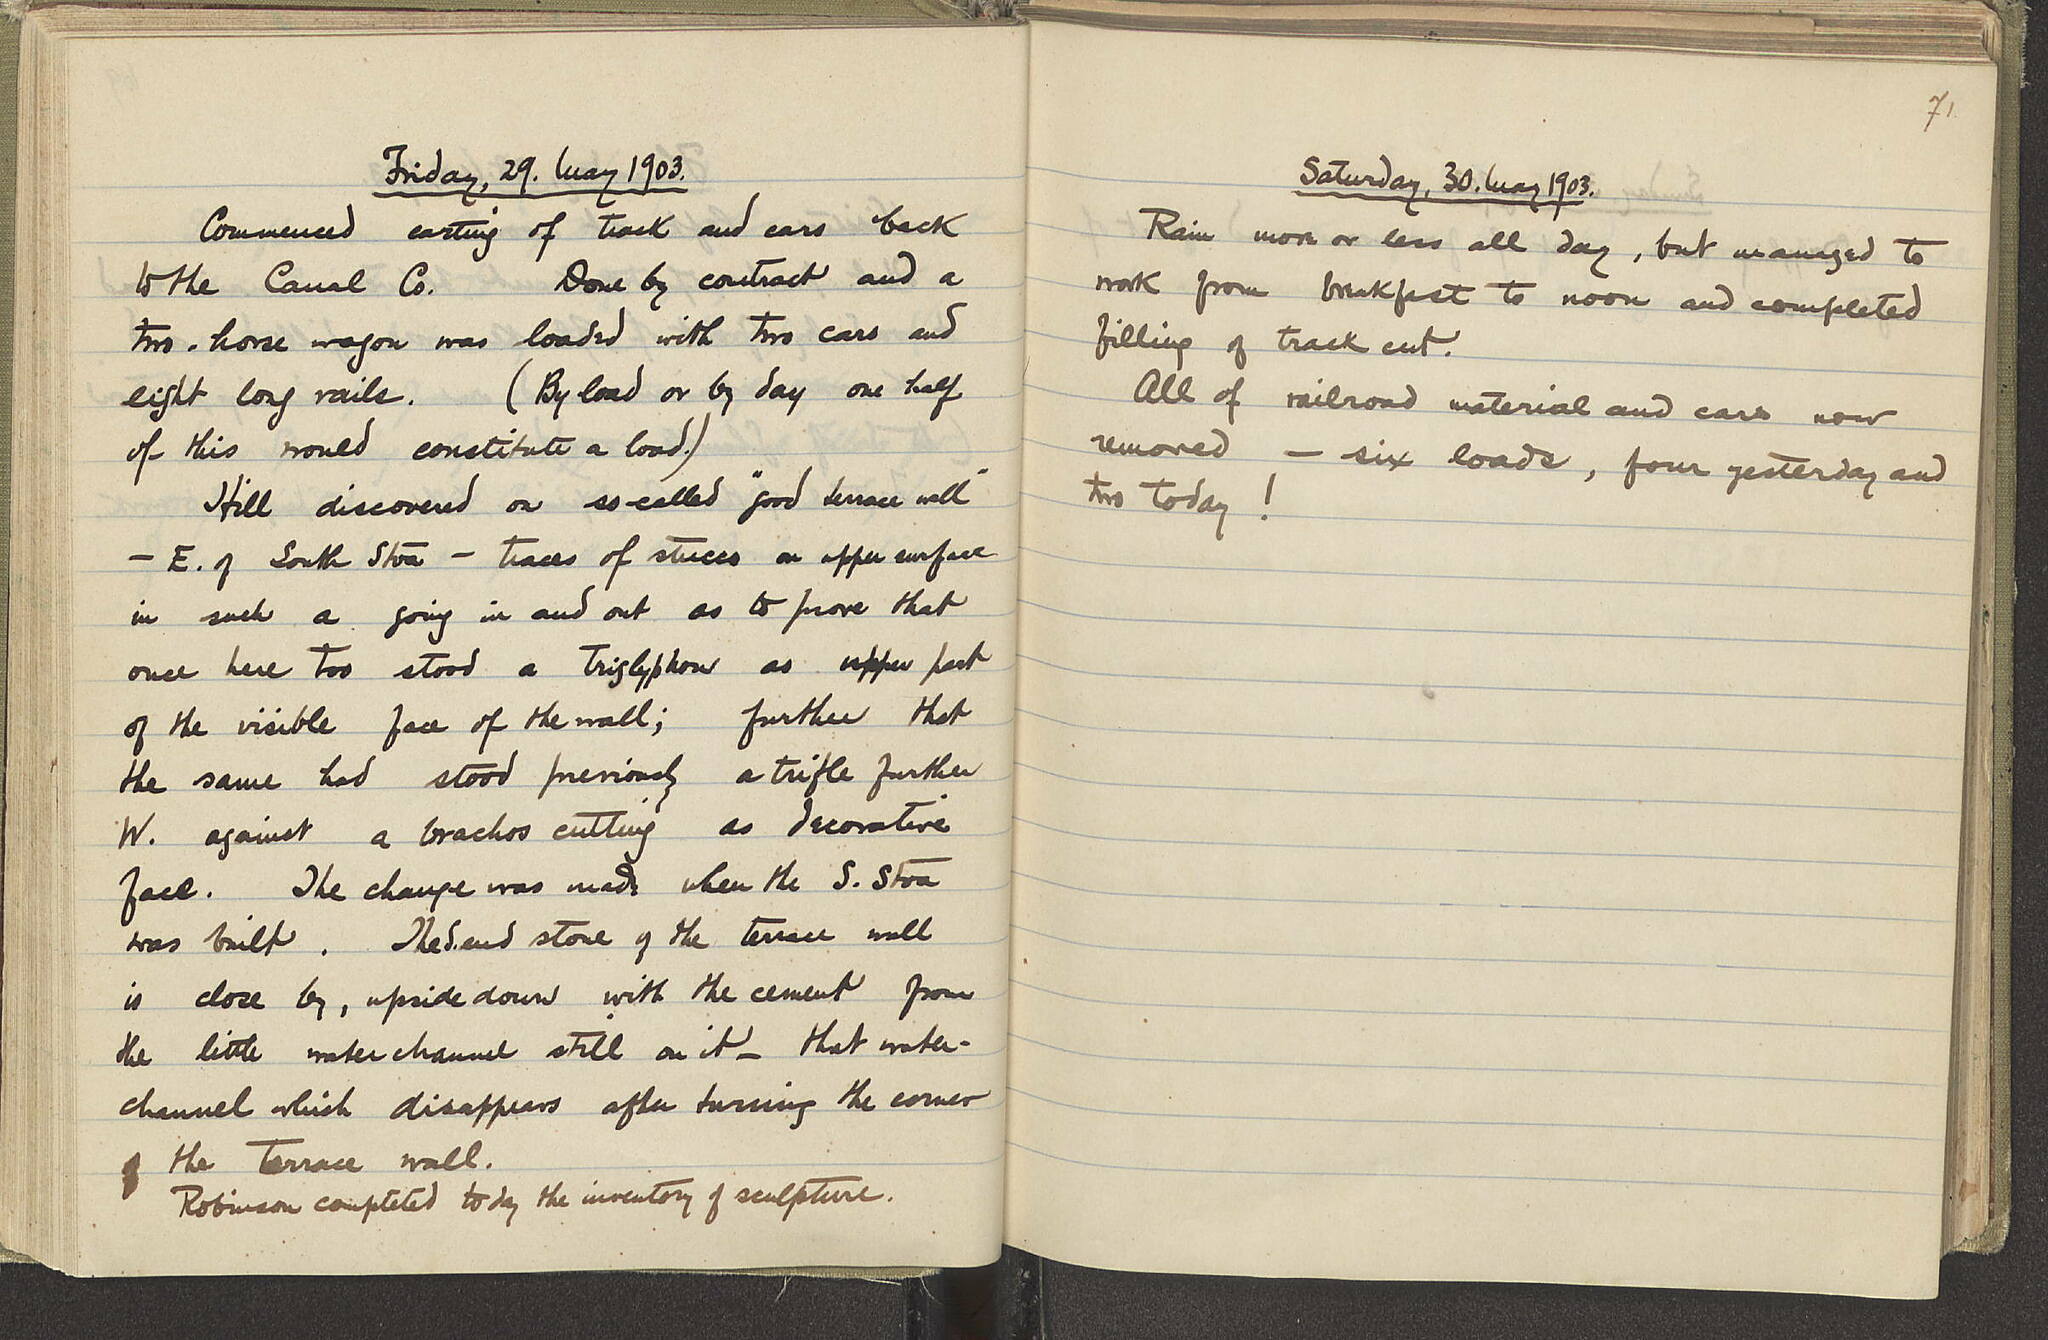 Friday, 29. May 1903.
Commenced carting of track and cars back
to the Canal Co. Done by contract and a
two-horse wagon was loaded with two cars and
eight long rails. (By load or by day one half
of this would constitute a load.)
Hill discovered on so-called "good terrace wall"
— E. of South Stoa — traces of stucco on upper surface
in such a going in and out as to prove that
once here too stood a triglyphon as upper part
of the visible face of the wall; further that
the same had stood previously a trifle further
W. against a brachos cutting as decorative
face. The change was made when the S. Stoa
was built. The end stone of the terrace wall
is close by, upside down with the cement from
the little water channel still on it — that water-
channel which disappears after turning the corner
of the terrace wall.
Robinson completed today the inventory of sculpture.
71
Saturday, 30. May 1903.
Rain more or less all day, but managed to
work from breakfast to noon and completed
filling of track cut.
All of railroad material and cars now
removed — six loads, four yesterday and
two today!